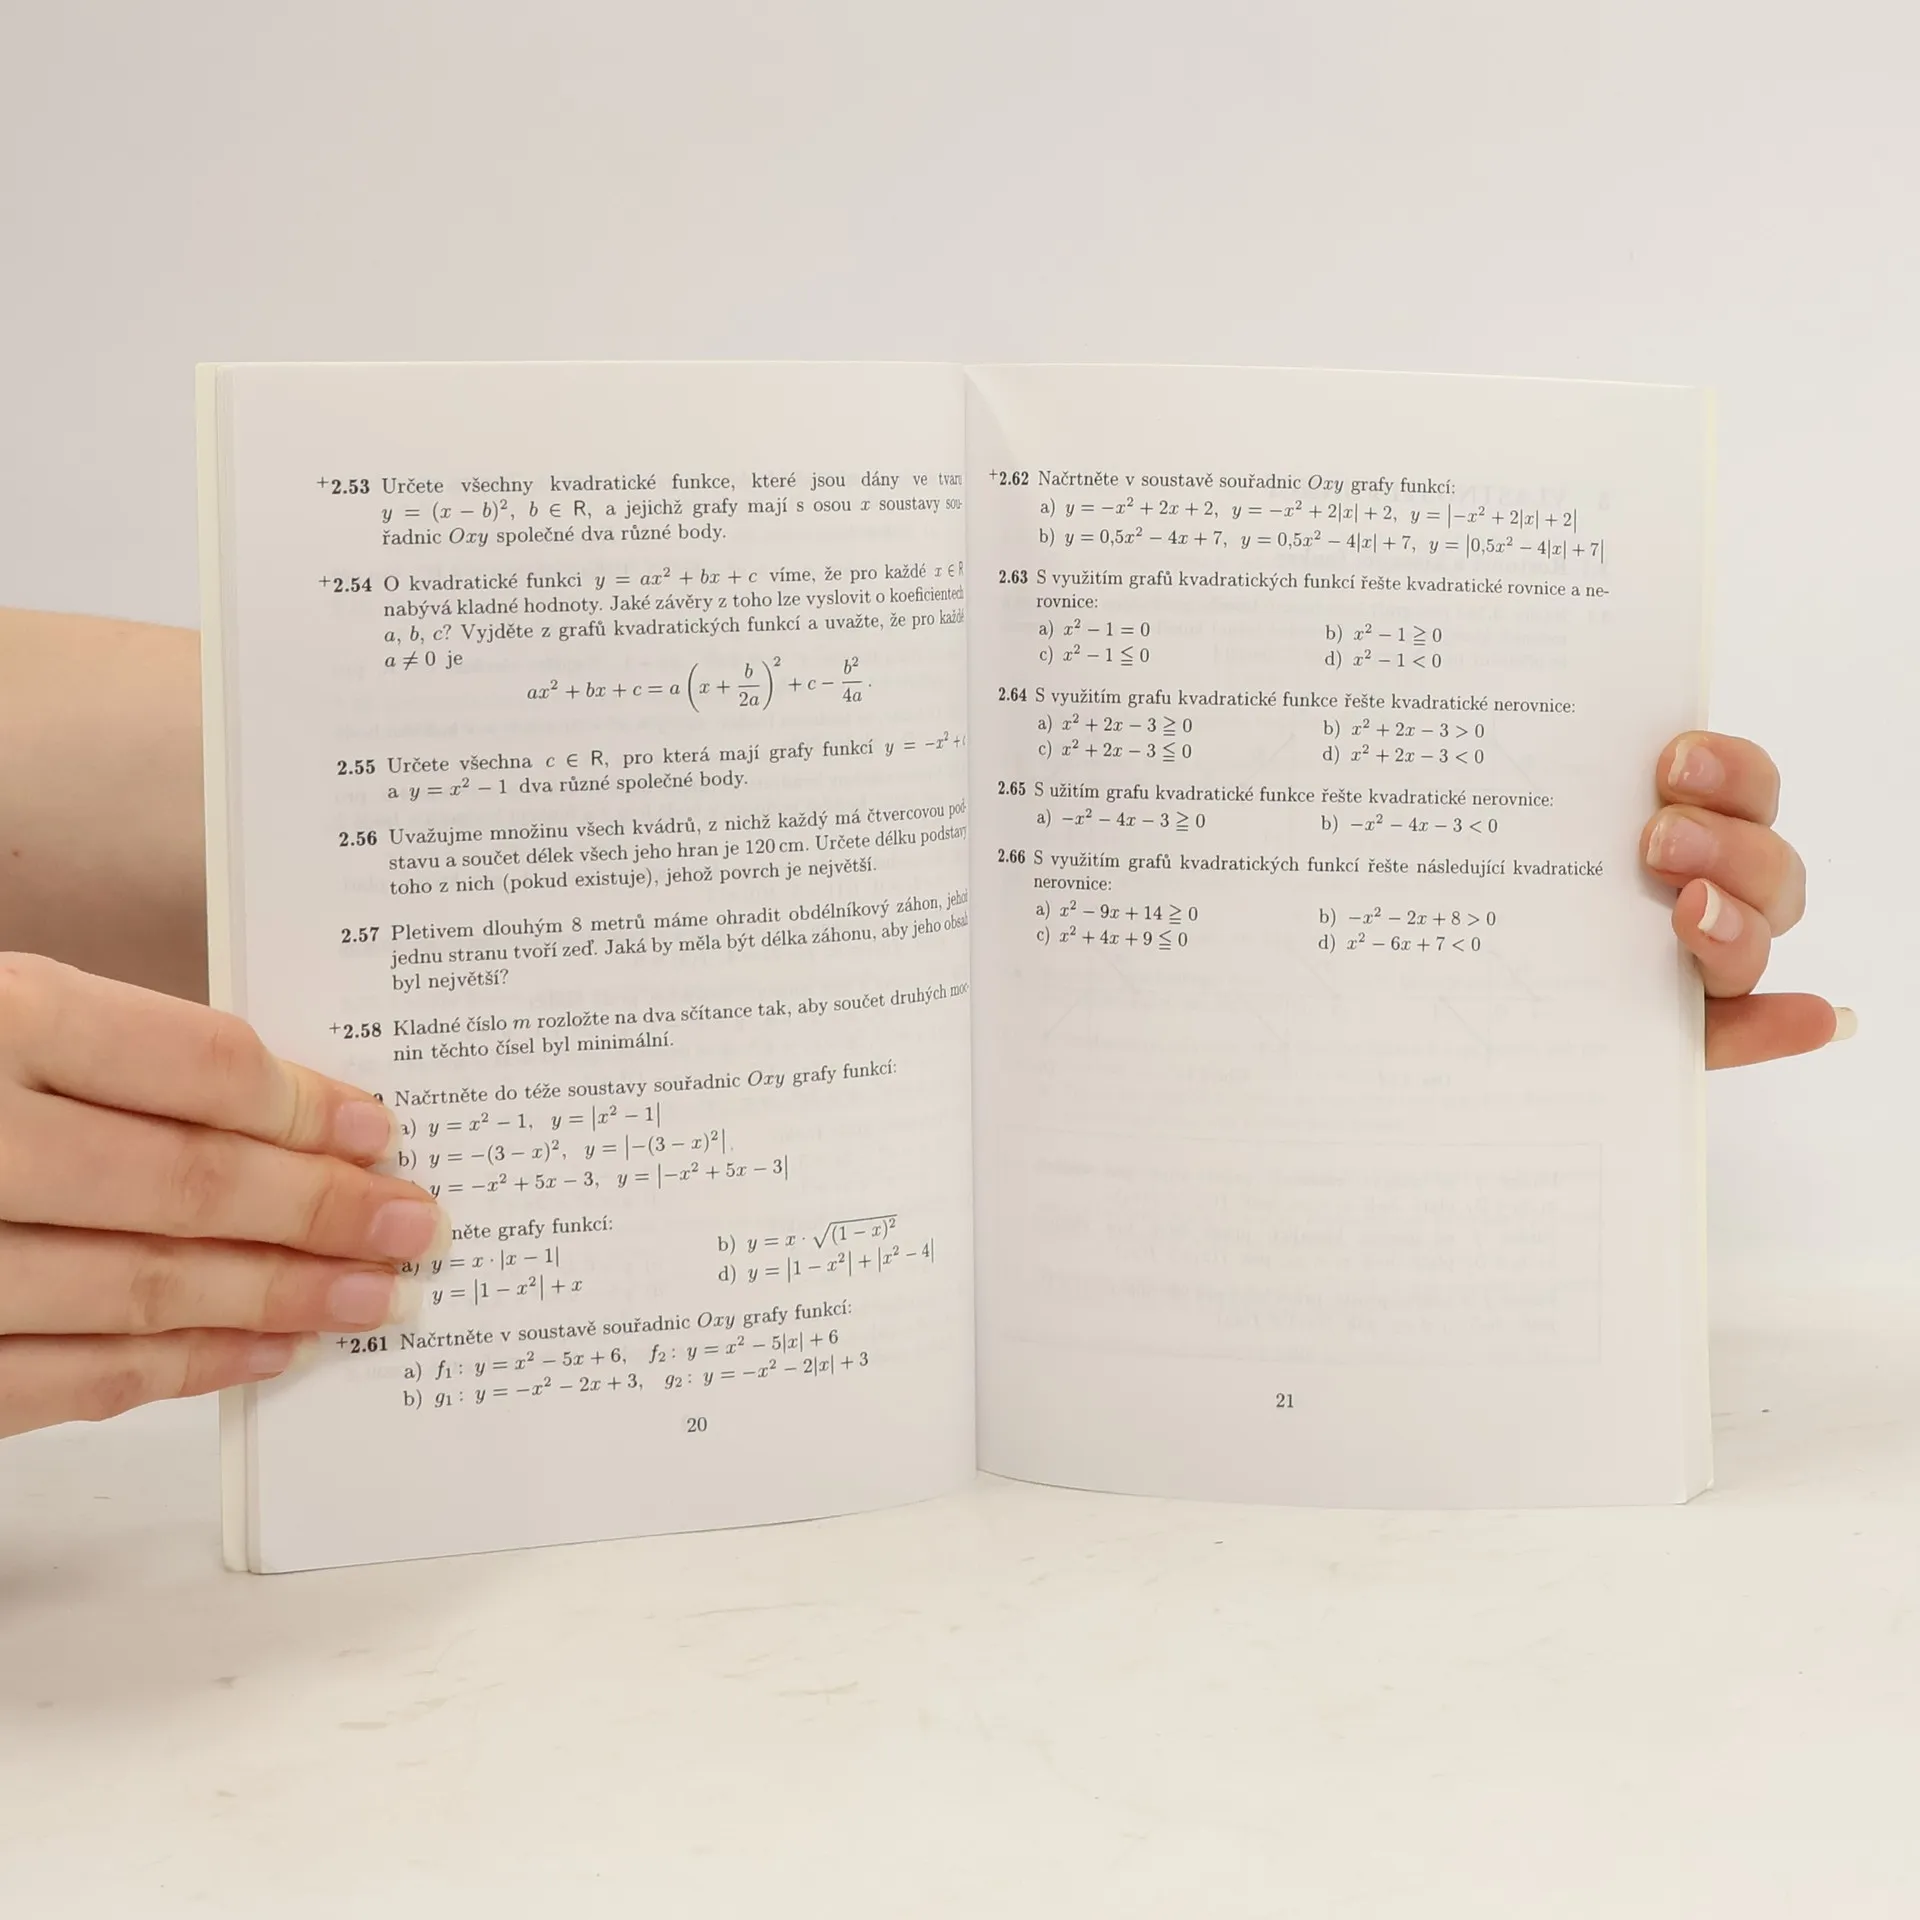 +2.53 Určete všechny kvadratické funkce, které jsou dány ve tvaru
y = (x − b)², b ∈ R, a jejichž grafy mají s osou x soustavy sou-
řadnic Oxy společné dva různé body.
+2.54 O kvadratické funkci y = ax² + bx + c víme, že pro každé x ∈ R
nabývá kladné hodnoty. Jaké závěry z toho lze vyslovit o koeficientech
a, b, c? Vyjděte z grafů kvadratických funkcí a uvažte, že pro každé
a ≠ 0 je
ax² + bx + c = a (x + b/2a)² + c − b²/4a.
2.55 Určete všechna c ∈ R, pro která mají grafy funkcí y = −x² +
a y = x² − 1 dva různé společné body.
2.56 Uvažujme množinu všech kvádrů, z nichž každý má čtvercovou pod-
stavu a součet délek všech jeho hran je 120 cm. Určete délku podstavy
toho z nich (pokud existuje), jehož povrch je největší.
2.57 Pletivem dlouhým 8 metrů máme ohradit obdélníkový záhon, jehož
jednu stranu tvoří zeď. Jaká by měla být délka záhonu, aby jeho obsah
byl největší?
+2.58 Kladné číslo m rozložte na dva sčítance tak, aby součet druhých moc-
nin těchto čísel byl minimální.
Načrtněte do téže soustavy souřadnic Oxy grafy funkcí:
a) y = x² − 1, y = |x² − 1|
b) y = −(3 − x)², y = |−(3 − x)²|.
y = −x² + 5x − 3, y = |−x² + 5x − 3|
něte grafy funkcí:
a) y = x · |x − 1| b) y = x · √(1 − x)²
y = |1 − x²| + x d) y = |1 − x²| + |x² − 4|
+2.61 Načrtněte v soustavě souřadnic Oxy grafy funkcí:
a) f₁: y = x² − 5x + 6, f₂: y = x² − 5|x| + 6
b) g₁: y = −x² − 2x + 3, g₂: y = −x² − 2|x| + 3
20
+2.62 Načrtněte v soustavě souřadnic Oxy grafy funkcí:
a) y = −x² + 2x + 2, y = −x² + 2|x| + 2, y = |−x² + 2|x| + 2|
b) y = 0,5x² − 4x + 7, y = 0,5x² − 4|x| + 7, y = |0,5x² − 4|x| + 7|
2.63 S využitím grafů kvadratických funkcí řešte kvadratické rovnice a ne-
rovnice:
a) x² − 1 = 0 b) x² − 1 ≧ 0
c) x² − 1 ≦ 0 d) x² − 1 < 0
2.64 S využitím grafu kvadratické funkce řešte kvadratické nerovnice:
a) x² + 2x − 3 ≧ 0 b) x² + 2x − 3 > 0
c) x² + 2x − 3 ≦ 0 d) x² + 2x − 3 < 0
2.65 S užitím grafu kvadratické funkce řešte kvadratické nerovnice:
a) −x² − 4x − 3 ≧ 0 b) −x² − 4x − 3 < 0
2.66 S využitím grafů kvadratických funkcí řešte následující kvadratické
nerovnice:
a) x² − 9x + 14 ≧ 0 b) −x² − 2x + 8 > 0
c) x² + 4x + 9 ≦ 0 d) x² − 6x + 7 < 0
21